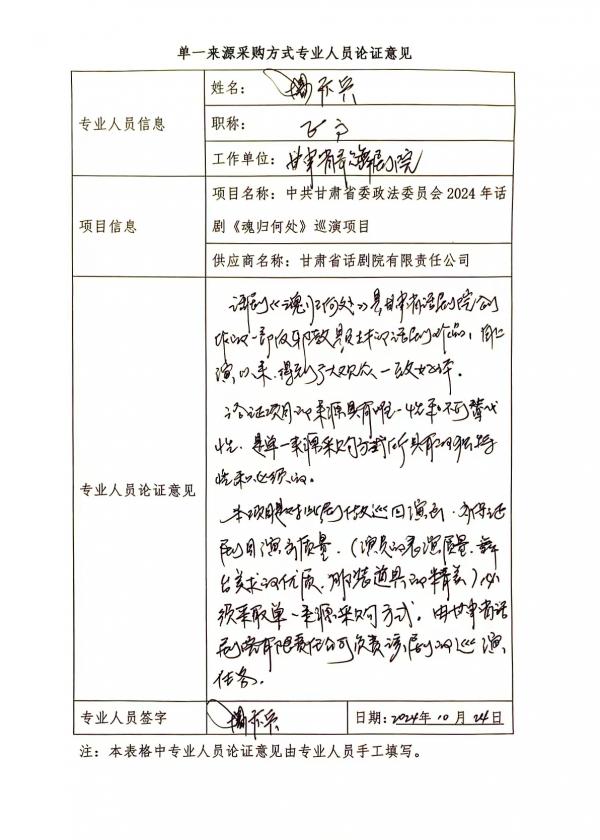 单一来源采购方式专业人员论证意见
专业人员信息
姓名：
职称：
工作单位：甘肃省剧院
项目信息
项目名称：中共甘肃省委政法委员会 2024 年话
剧《魂归何处》巡演项目
供应商名称：甘肃省话剧院有限责任公司
专业人员论证意见
话剧《魂归何处》是甘肃省话剧院创
作的一部反邪教题材的话剧作品，自
演以来，得到了大众一致好评。
论证项目的来源具有唯一性和不可替代
性，是单一来源采购方式所具有的独特
性和必须的。
本项目是对此剧作巡回演出，为保证
剧目演出质量，（演员的表演质量、舞
台美术的优质、服装道具的精美）必
须采取单一来源采购方式，由甘肃省话
剧院有限责任公司负责该剧的巡演
任务。
专业人员签字
日期：2024年10月24日
注：本表格中专业人员论证意见由专业人员手工填写。